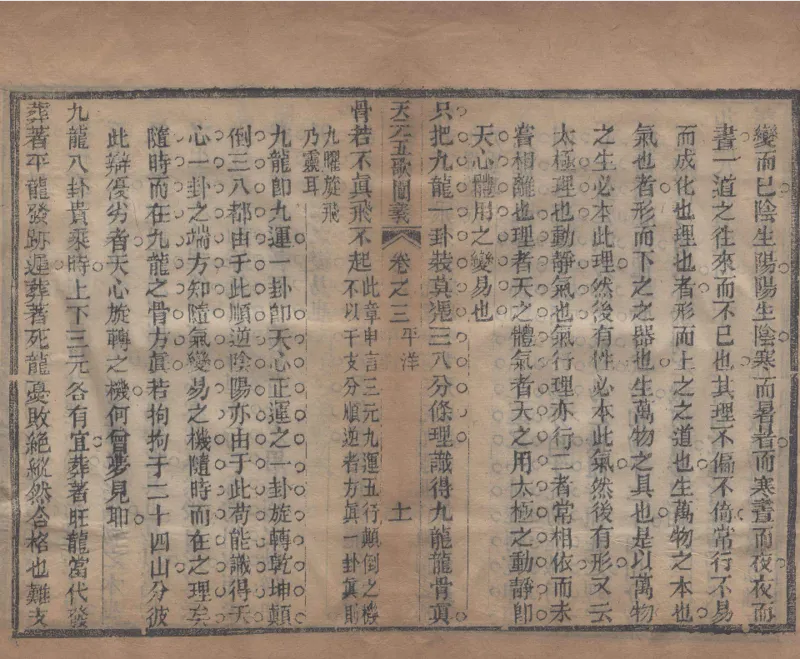 變而已陰生陽陽生陰寒而暑暑而寒晝而夜夜而
晝一道之往來而不已也其理不偏不倚常行不易
而成化也理也者形而上之之道也生萬物之本也
氣也者形而下之之器也生萬物之具也是以萬物
之生必本此理然後有性必本此氣然後有形又云
太極理也動靜氣也氣行理亦行二者常相依而未
嘗相離也理者天之體氣者天之用太極之動靜卽
天心體用之變易也
只把九龍一卦裝眞混三八分條理識得九龍龍骨眞
天元五歌闡義
卷之三
平洋
十一
骨若不眞飛不起
此章申言三元九運五行顚倒之機
不以干支分順逆者方眞一卦眞則
九曜旋飛
乃靈耳
九龍卽九運一卦卽天心正運之一卦旋轉乾坤顚
倒三八都由于此順逆陰陽亦由于此苟能識得天
心一卦之端方知隨氣變易之機隨時而在之理矣
隨時而在九龍之骨方眞若拘拘于二十四山分彼
此辯優劣者天心旋轉之機何曾夢見耶
九龍八卦貴乘時上下三元各有宜葬著旺龍當代發
葬著平龍發跡遲葬著死龍憂敗絕縱然合格也難支